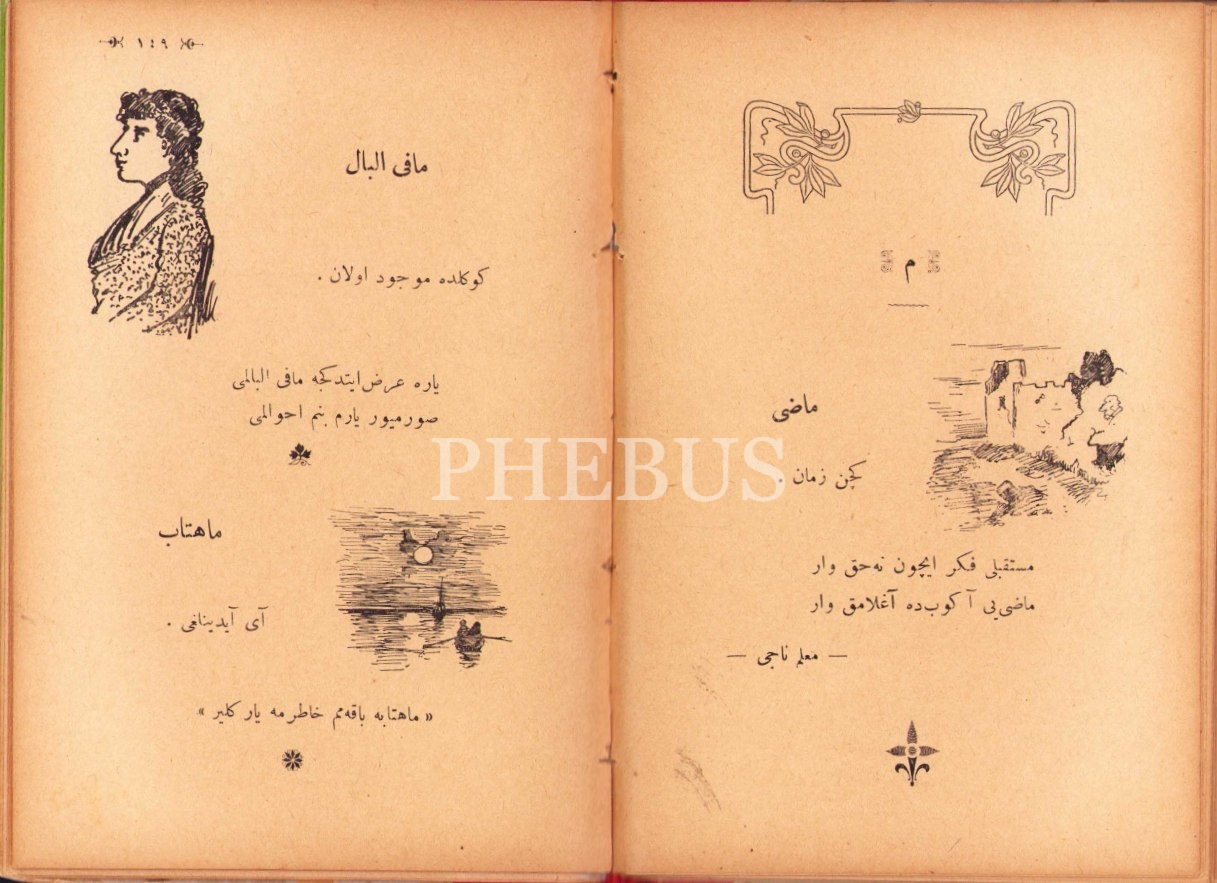 م
ماضی
كچن زمان .
مستقبلی فكر ایچون نه‌حق وار
ماضی‌یی آ كوب‌ده آغلامق وار
— معلم ناجی —
١٤٩
مافی البال
كوكلده موجود اولان .
یاره عرض ایتدكجه مافی البالمی
صورمیور یارم بنم احوالمی
ماهتاب
آی آیدینلغی .
« ماهتابه باقه‌مم خاطرمه یار كلیر »
PHEBUS